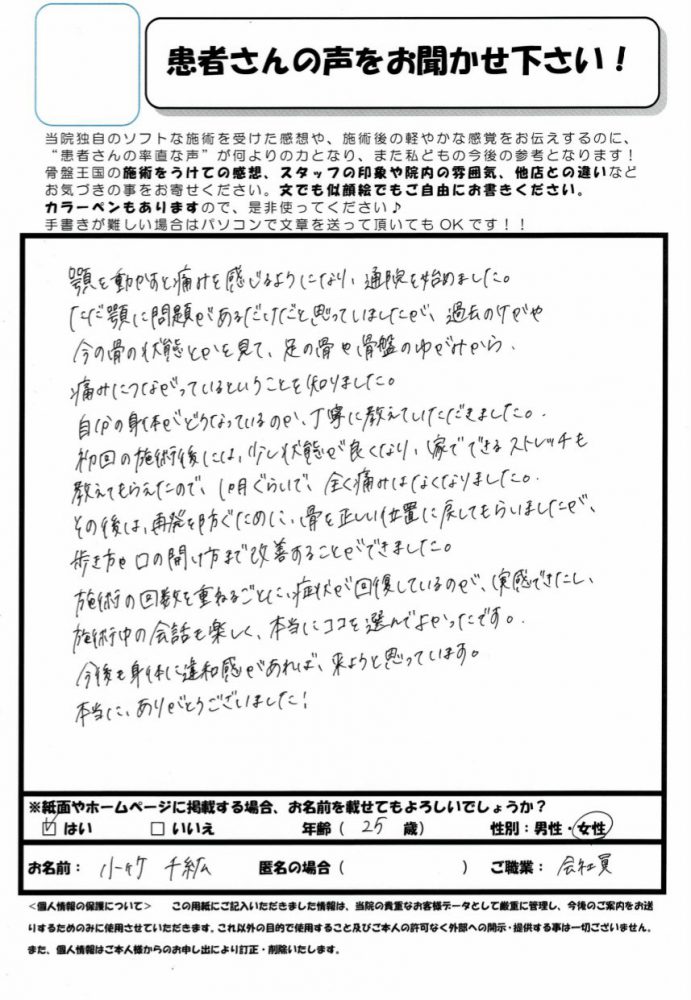 患者さんの声をお聞かせ下さい！
当院独自のソフトな施術を受けた感想や、施術後の軽やかな感覚をお伝えするのに、
“患者さんの率直な声”が何よりの力となり、また私どもの今後の参考となります！
骨盤王国の施術をうけての感想、スタッフの印象や院内の雰囲気、他店との違いなど
お気づきの事をお寄せください。文でも似顔絵でもご自由にお書きください。
カラーペンもありますので、是非使ってください♪
手書きが難しい場合はパソコンで文章を送って頂いてもOKです！！
顎を動かすと痛みを感じるようになり、通院を始めました。
ただ顎に問題があるだけだと思っていましたが、過去のケガや
今の骨の状態とかを見て、足の骨や骨盤のゆがみから、
痛みにつながっているということを知りました。
自分の身体がどうなっているのか、丁寧に教えていただきました。
初回の施術後には、少し状態が良くなり、家でできるストレッチも
教えてもらえたので、1ヶ月ぐらいで、全く痛みはなくなりました。
その後は、再発を防ぐために、骨を正しい位置に戻してもらいましたが、
歩き方や口の開け方まで改善することができました。
施術の回数を重ねるごとに、症状が回復しているのが、実感できたし、
施術中の会話も楽しく、本当にココを選んでよかったです。
今後も身体に違和感があれば、来ようと思っています。
本当に、ありがとうございました！
※紙面やホームページに掲載する場合、お名前を載せてもよろしいでしょうか？
☑ はい □ いいえ 年齢（ 25 歳） 性別：男性・女性
お名前： 小竹 千紘 匿名の場合（ ） ご職業： 会社員
＜個人情報の保護について＞ この用紙にご記入いただきました情報は、当院の貴重なお客様データとして厳重に管理し、今後のご案内をお送
りするためのみに使用させていただきます。これ以外の目的で使用すること及びご本人の許可なく外部への開示・提供する事は一切ございません。
また、個人情報はご本人様からのお申し出により訂正・削除いたします。